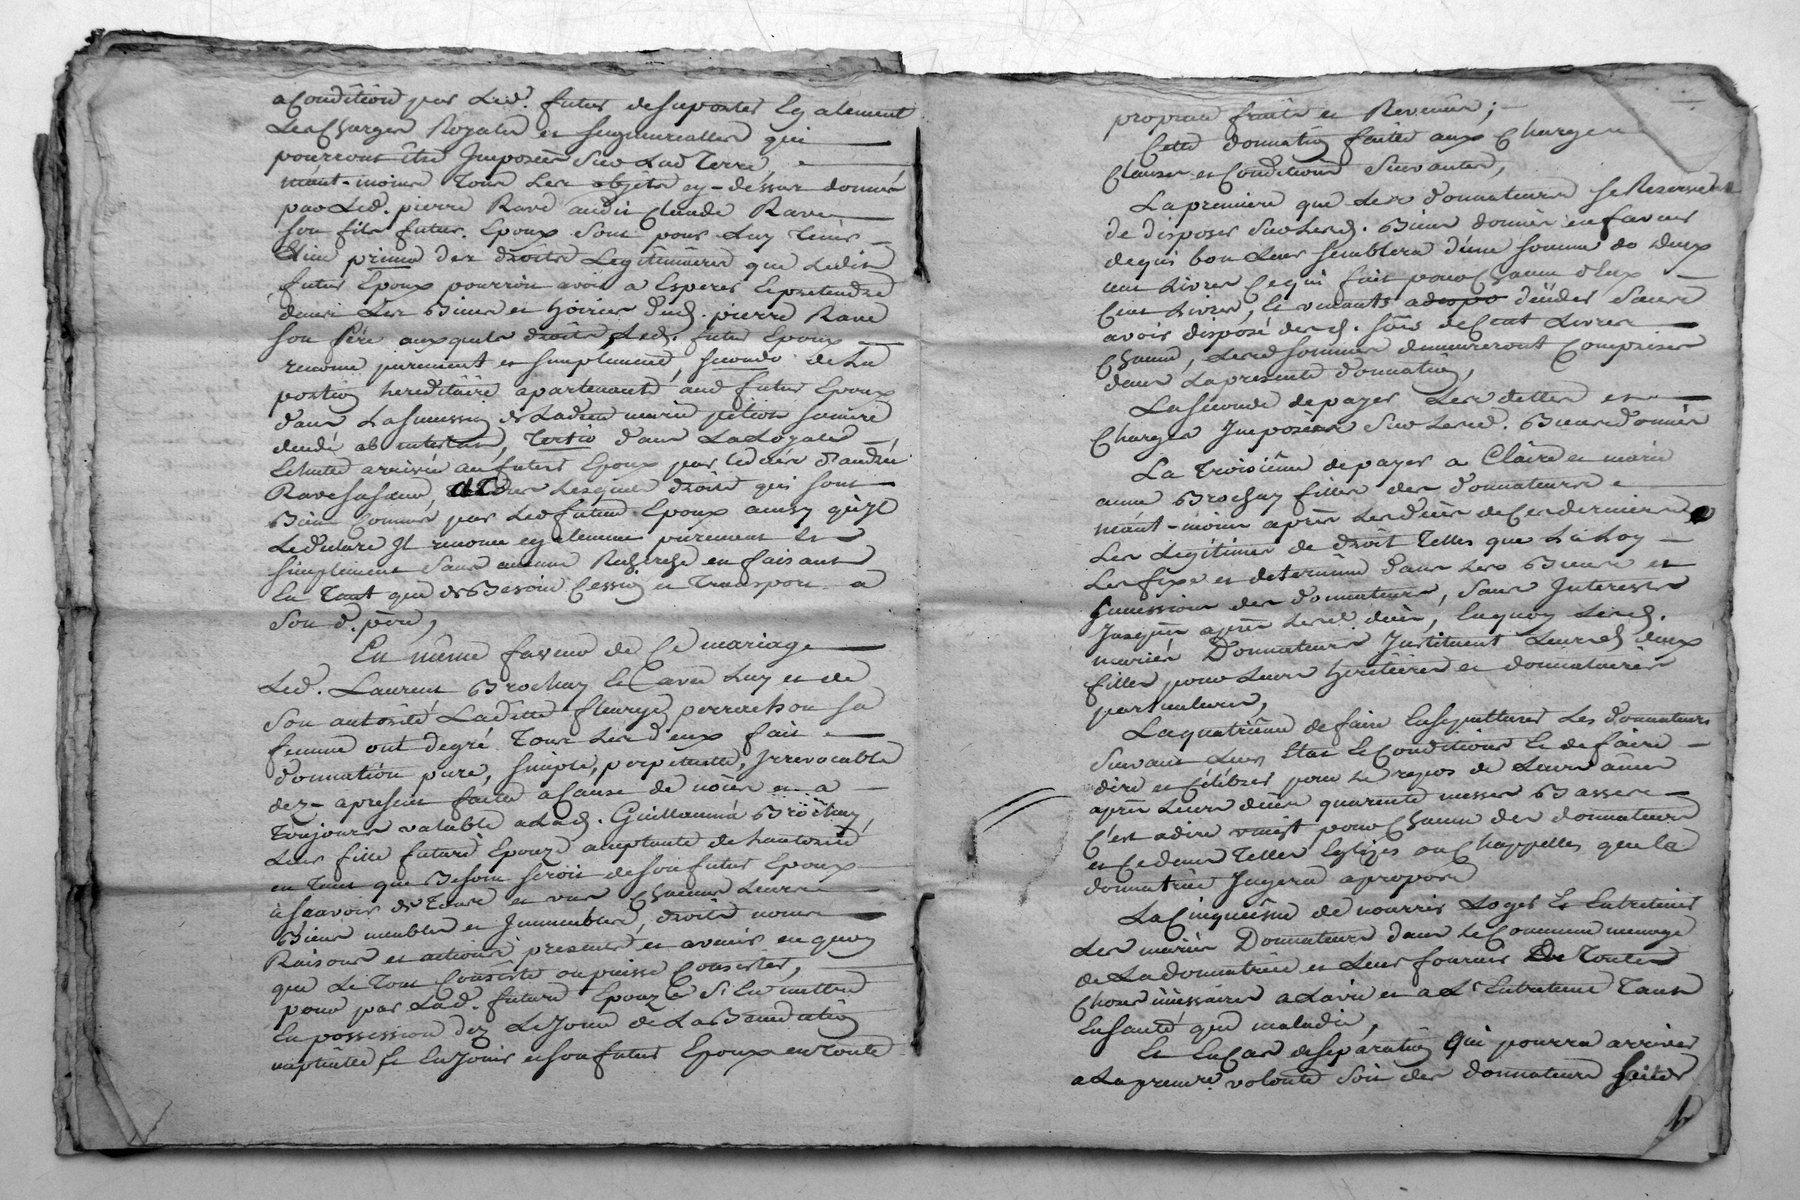 a Condition par Led. futur de suporter Egalement
Les Charges Royales et seigneurialles qui
pourront être Imposées sur Lad Terre,
néant-moins Tous Les objets cy-dessus donnés
par Led. pierre Rave audit Claude Rave
son fils futur Epoux sont pour Luy Tenir
Lieu primo des droits Légitimaires que Ledit
futur Epoux pourroit avoir a Esperer Et pretendre
dans Les Biens et hoiries dud. pierre Rave
son Père auxquels droits Led. futur Epoux
renonce purement et simplement, secundo de La
portion hereditaire apartenante aud futur Epoux
dans La succession de Ladite marie sa mère
decedé ab intestat, Tertio dans La Loyale
Echute arrivée au futur Epoux par Le décès d'andrée
Rave sa sœur, à Tous Lesquels droits qui sont
Bien Connus par Led futur Epoux ainsy qu'jl
Le declare Jl renonce egalement purement Et
simplement sans aucune Recherche en faisant
En Tant que de Besoin Cession et Transport a
son d. père,
En même faveur de Ce mariage
Led. Laurent Brochay Et avec Luy et de
son autorité Ladite fleurye perrachon sa
femme ont degré Tous Les deux fait
donnation pure, simple, perpetuelle, Irrevocable
dez-apresent faite a Cause de nôces et a
Toujours valable a Lad. Guillauma Brochay,
Leur fille future Epouze acceptante de Lautorité
en Tant que Besoin seroit de son futur Epoux
à sçavoir de Tous et uns Chacuns Leurs
Biens meubles et Immeubles, droits noms
Raisons et actions presents et avenir en quoy
que Le Tout Consiste ou puisse Consister,
pour par Lad. future Epouze s'En mettre
En possession dez Le Jour de La Benediction
nuptialle Et En Jouir et son futur Epoux en toute
proprieté fruits et Revenus;
Cette donnation faite aux Charges
Clauses et Conditions Suivantes,
La premiere que Les donnateurs se Reservent
de disposer sur Lesd. Biens donnés en faveur
de qui bon Leur semblera d'une somme de deux
cent Livres Ce qui fait pour Chacun d'Eux
Cent Livres, Et venants a decéder sans
avoir disposé desd. somes de Cent Livres
Chacun, Lesd sommes demeureront Comprises
dans La presente donnation,
La seconde de payer Les dettes et
Charges Imposées sur Lesd. Biens donnés
La Troisième de payer a Claire et marie
anne Brochay filles des donnateurs
néant-moins après Le décès de Ces derniers
Les Légitimes de droit Telles que La Loy
Les fixe et determine dans Les Biens et
successions des donnateurs, sans Interets
Jusqu'en après Led. décès, En quoy Lesd.
mariés Donnateurs Instituent Leursd. deux
filles pour Leurs heritieres et donnataires
particulieres,
La quatrième de faire Ensepulturer Les donnateurs
suivant Leur Etat Et Conditions Et de faire
dire et Célébrer pour Le repos de Leurs âmes
après Leurs décès quarente messes Basses
C'est adire vingt pour Chacun des donnateurs
et Ce dans Telles Eglizes ou Chappelles que La
donnatrice Jugera apropos
La Cinquième de nourrir Loger Et Entretenir
Les mariés Donnateurs dans Le Commun menage
de La donnatrice et Leur fournir De Toutes
Choses nécessaires a La vie et a L'Entretien Tant
En santé que maladie,
Et En Cas de séparation qui pourra arriver
a La premre. volonté soit des donnateurs soit des